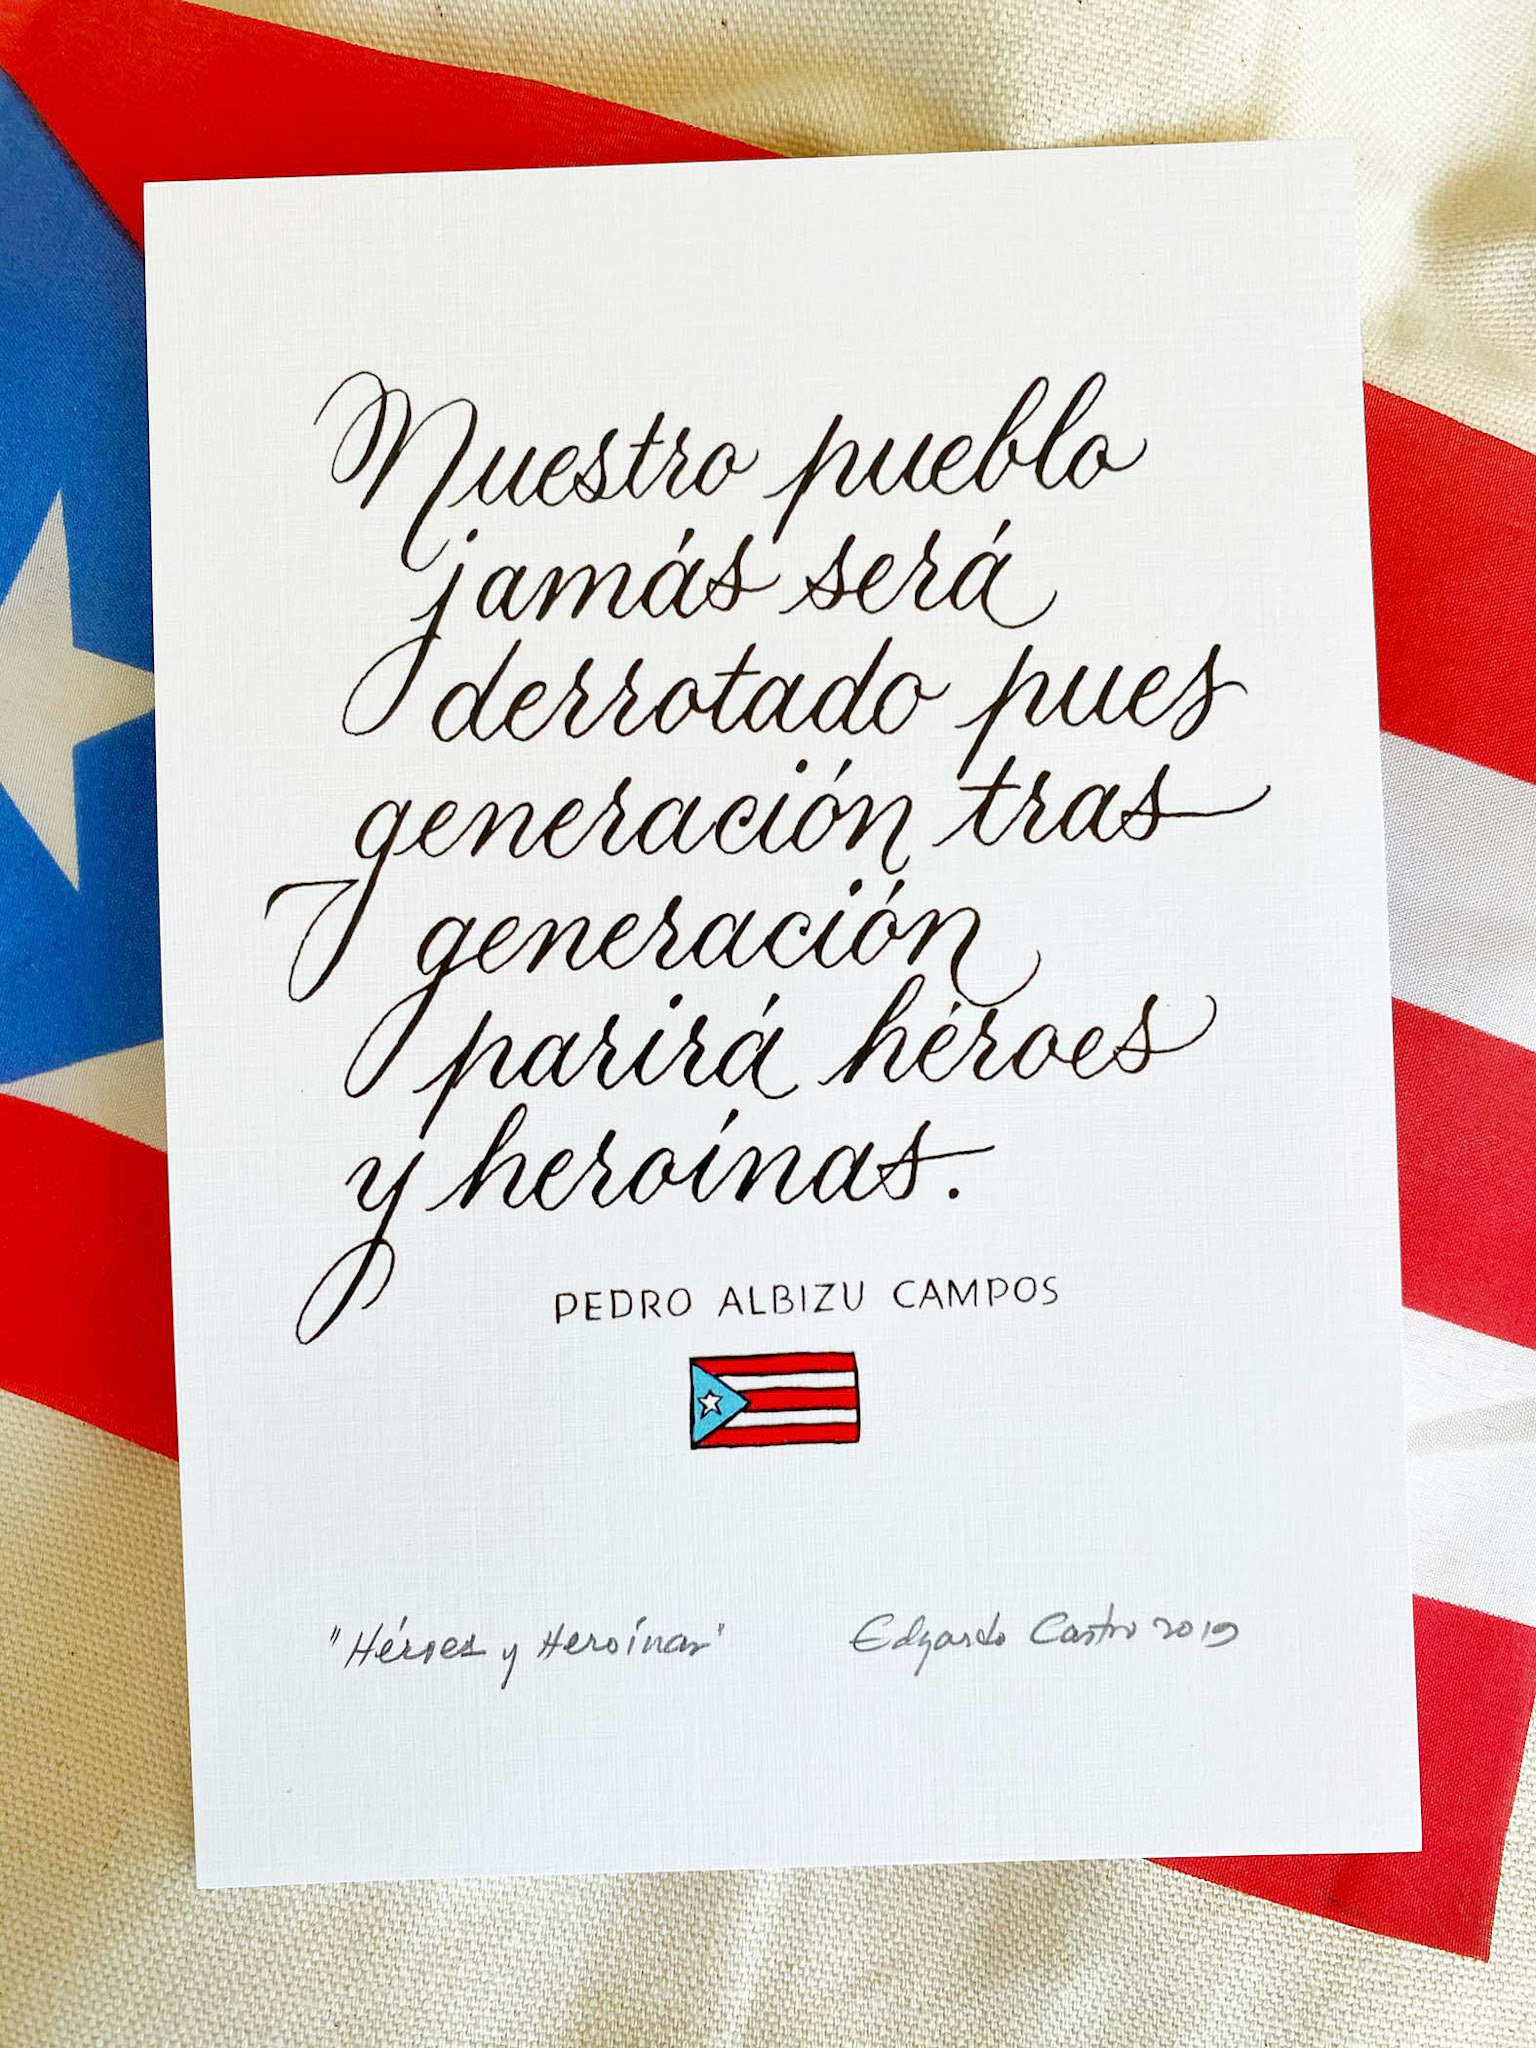 Nuestro pueblo
jamás será
derrotado pues
generación tras
generación
parirá héroes
y heroínas.
PEDRO ALBIZU CAMPOS
"Héroes y Heroínas" Edgardo Castro 2019